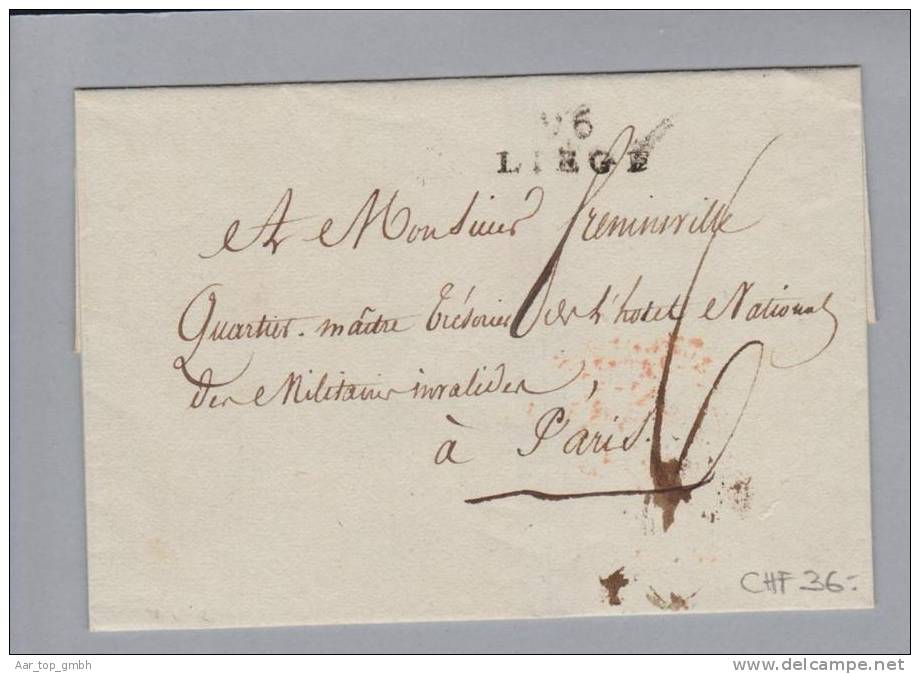 96
LIEGE
A Monsieur Freminville
Quartier-maître trésorier de l'hotel National
des Militaires invalides,
à Paris.
6
CHF 36.-
Aar_top_gmbh
www.delcampe.net